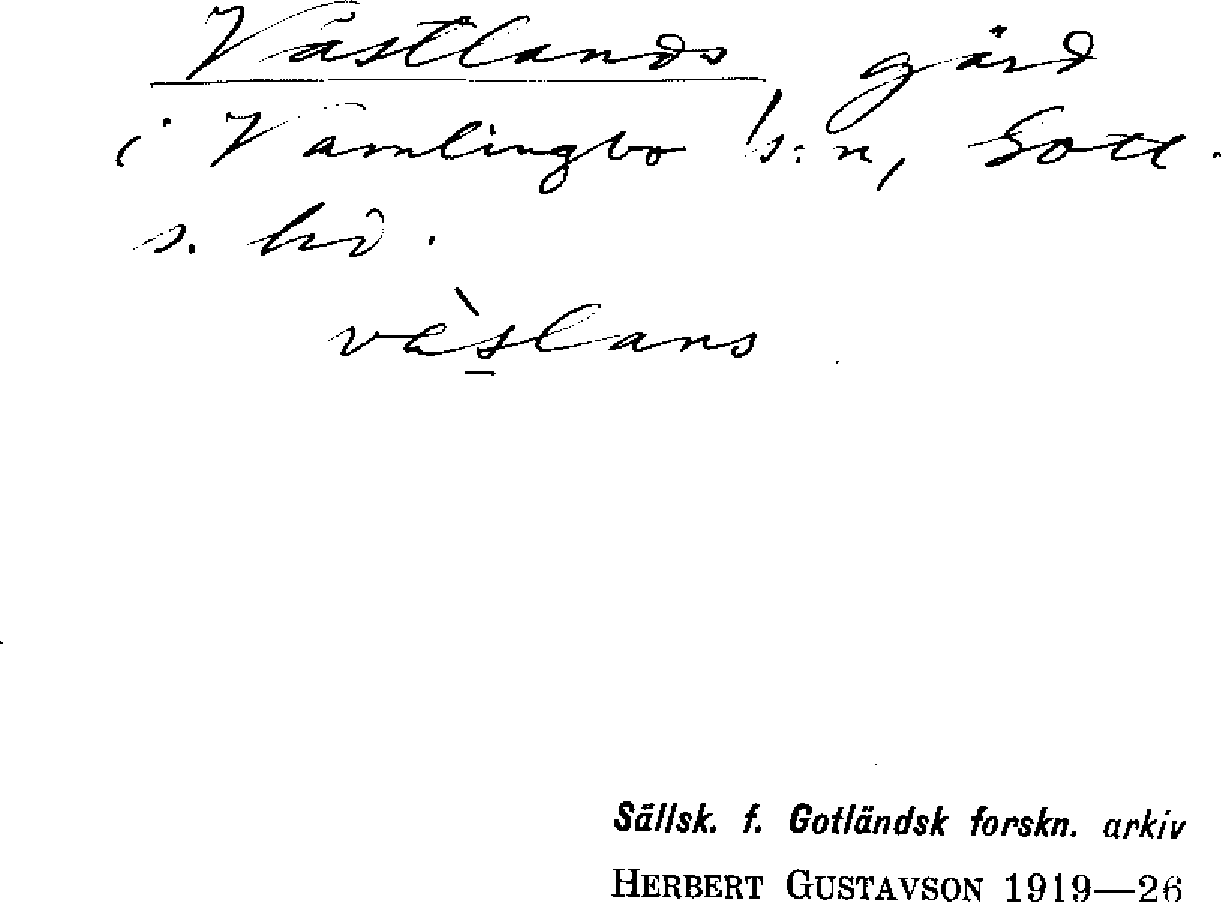 Västlands gård
i Vamlingbo s:n, Gotl.
s. hd.
vàslans
Sällsk. f. Gotländsk forskn. arkiv
HERBERT GUSTAVSON 1919—26